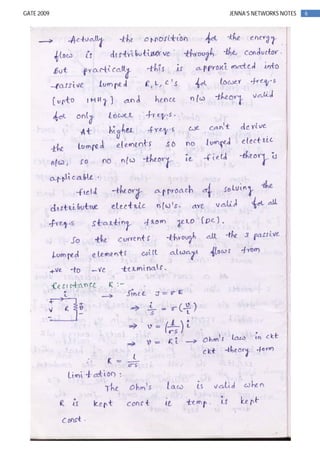 GATE 2009 JENNA'S NETWORKS NOTES 6
→ Actually the opposition for the energy
flow is distributive through the conductor.
But practically this is approximated into
passive lumped R, L, C's for lower freq-s
(upto 1MHz) and hence n/w theory valid
for only lower freq-s.
At higher freq-s. we can't derive
the lumped elements so no lumped electric
n/w, so no n/w theory ie field theory is
applicable.
field theory approach of solving the
distributive electric n/w's. are valid for all
freq-s starting from zero (DC).
So the currents through all the 3 passive
Lumped elements will always flows from
+ve to -ve terminals.
Resistance R :-
i → Since J = σE
v R ⇒ i/s = σ(v/l)
⇒ v = (l/σs) i
⇒ v = Ri → Ohm's law in ckt
ckt theory form
∴ R = l/σs
Limitation :
The Ohm's law is valid when
R is kept const ie temp. is kept
const.